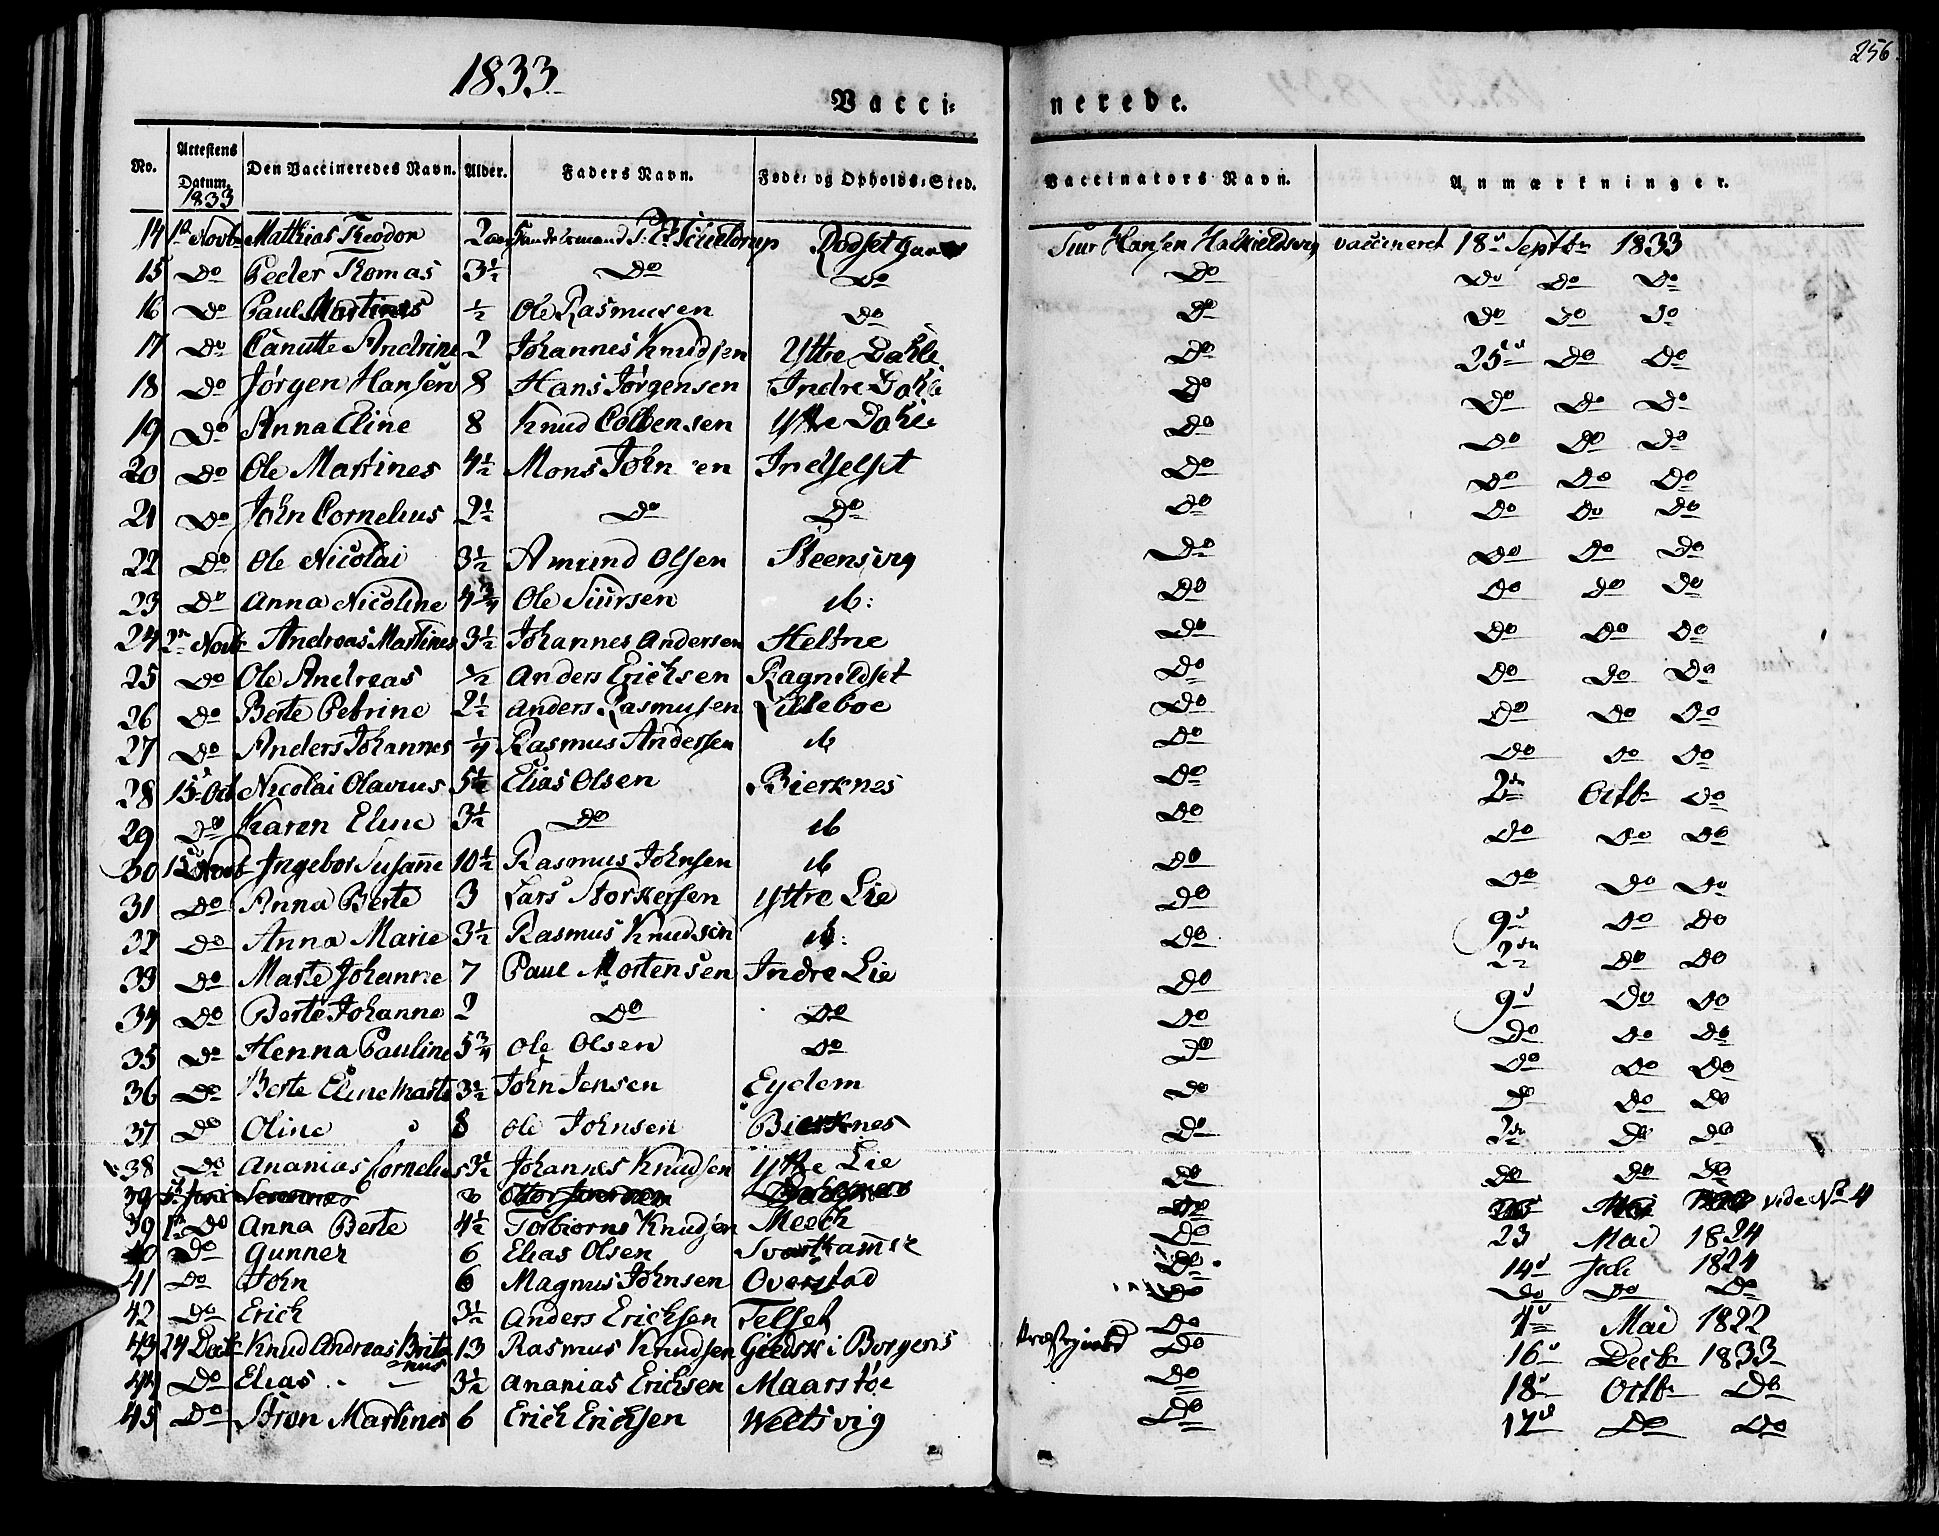 1833
256
Vacci-
nerede.
No. Attestens Datum. 1833 Den Vaccineredes Navn. Alder. Faders Navn. Føde- og Opholds-Sted. Vaccinators Navn. Anmærkninger.
14 1st Novb Mathias Theodor 2 Rødset Siur Hansen vaccineret 18d Septbr 1833
15 Do Peder Thomas 3½ Do Do Do Do Do Do
16 Do Paul Martines ½ Ole Rasmusen Do Do Do Do Do
17 Do Canutte Andrine 2 Johannes Knudsen Yttre Dahle Do 25d Do Do
18 Do Jørgen Hansen 8 Hans Jørgensen Indre Dahle Do Do Do Do
19 Do Anna Eline 8 Knud Colbensen Yttre Dahle Do Do Do Do
20 Do Ole Martines 4½ Mons Indselset Do Do Do Do
21 Do John Cornelius 2½ Do Do Do Do Do Do
22 Do Ole Nicolai 3½ Amund Olsen Steensvig Do Do Do Do
23 Do Anna Nicoline 4¾ Ole Siursen ib: Do Do Do Do
24 2n Novb Andreas Martines 3½ Johannes Andersen Heltne Do Do Do Do
25 Do Ole Andreas ½ Anders Erichsen Ragnildset Do Do Do Do
26 Do Berte Petrine 2½ Anders Rasmusen Lilleboe Do Do Do Do
27 Do Anders Johannes ¼ Rasmus Andersen ib Do Do Do Do
28 15d Oct Nicolai Olavius 5½ Elias Olsen Bierknes Do 2dn Octb Do
29 Do Karen Eline 3½ Do ib Do Do Do Do
30 15 Novb Ingebor Susanne 10½ Rasmus Johnsen ib Do Do Do Do
31 Do Anna Berte 3 Lars Storkersen Yttre Lie Do 9d Do Do
32 Do Anna Marie 3½ Rasmus Knudsen ib: Do 2dn Do Do
33 Do Marte Johanne 7 Paul Mortensen Indre Lie Do 9d Do Do
34 Do Berte Johanne 2 Do Do Do Do Do Do
35 Do Henna Pauline 5¾ Ole Olsen Do Do Do Do Do
36 Do Berte Eline Marte 3½ John Jensen Eydem Do Do Do Do
37 Do Oline 8 Ole Johnsen Bierknes Do 2dn Do Do
38 Do Ananias Cornelius 3½ Johannes Knudsen Yttre Lie Do Do Do Do
39 Do vide No 4
39 1st Do Anna Berte 4½ Torbiorns Knudsen Meek Do 23 Mai 1824
40 Do Gunner 6 Elias Olsen Do 14d 1824
41 Do John 6 Magnus Johnsen Overstad Do Do Do Do
42 Do Erich 3½ Anders Erichsen Telset Do 4d Mai 1822
43 24 Decb Knud Andreas Britanus 13 Rasmus Knudsen Giedsk i Borgens Præstgield Do 16d Decb 1833
44 Do Elias 3½ Ananias Erichsen Maarstøe Do 18d Octb Do
45 Do Søren Martines 6 Erich Erichsen Weltsvig Do 17d Do Do